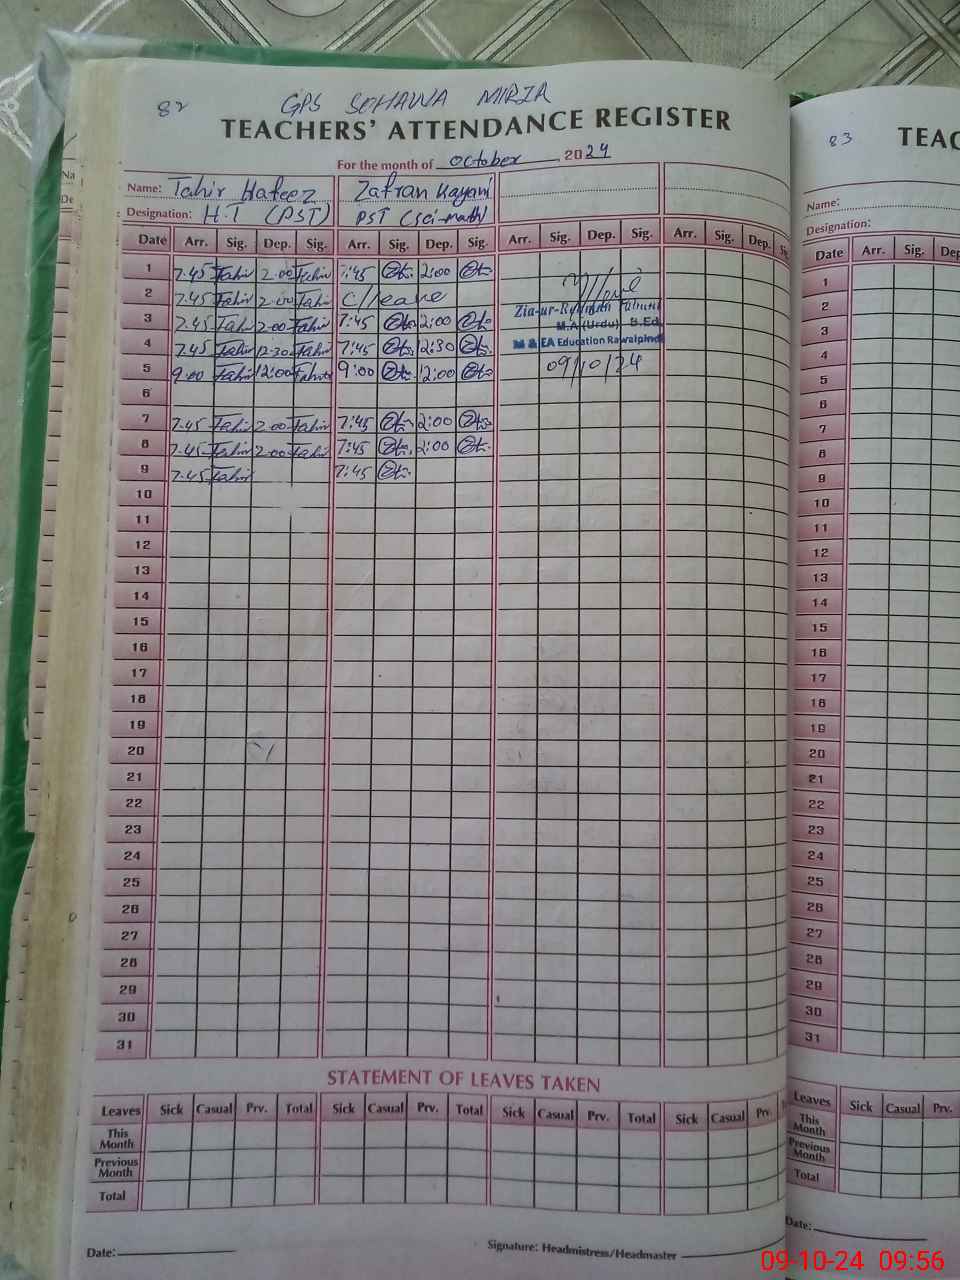 82
GPS SOHAWA MIRZA
TEACHERS' ATTENDANCE REGISTER
For the month of October 2024
Name: Tahir Hafeez Zafran Kayani
Designation: H.T (PST) PST (Sci-math)
Date Arr. Sig. Dep. Sig. Arr. Sig. Dep. Sig. Arr. Sig. Dep. Sig. Arr. Sig. Dep. Sig.
1 7.45 Tahir 2.00 Tahir 7:45 2:00
2 7.45 Tahir 2.00 Tahir C/leave
3 7.45 Tahir 2.00 Tahir 7:45 2:00 Zia-ur-Rehman
M.A (Urdu) B.Ed
4 7.45 Tahir 12.30 Tahir 7:45 12:30 M & EA Education Rawalpindi
5 9.00 Tahir 12:00 Tahir 9:00 12:00 09/10/24
6
7 7.45 Tahir 2.00 Tahir 7:45 2:00
8 7.45 Tahir 2.00 Tahir 7:45 2:00
9 7.45 Tahir 7:45
10
11
12
13
14
15
16
17
18
19
20
21
22
23
24
25
26
27
28
29
30
31
STATEMENT OF LEAVES TAKEN
Leaves Sick Casual Prv. Total Sick Casual Prv. Total Sick Casual Prv. Total Sick Casual Prv.
This Month
Previous Month
Total
Date: Signature: Headmistress/Headmaster
83
TEAC
Name:
Designation:
Date Arr. Sig. Dep
1
2
3
4
5
6
7
8
9
10
11
12
13
14
15
16
17
18
19
20
21
22
23
24
25
26
27
28
29
30
31
Leaves Sick Casual Prv.
This Month
Previous Month
Total
Date:
09-10-24 09:56